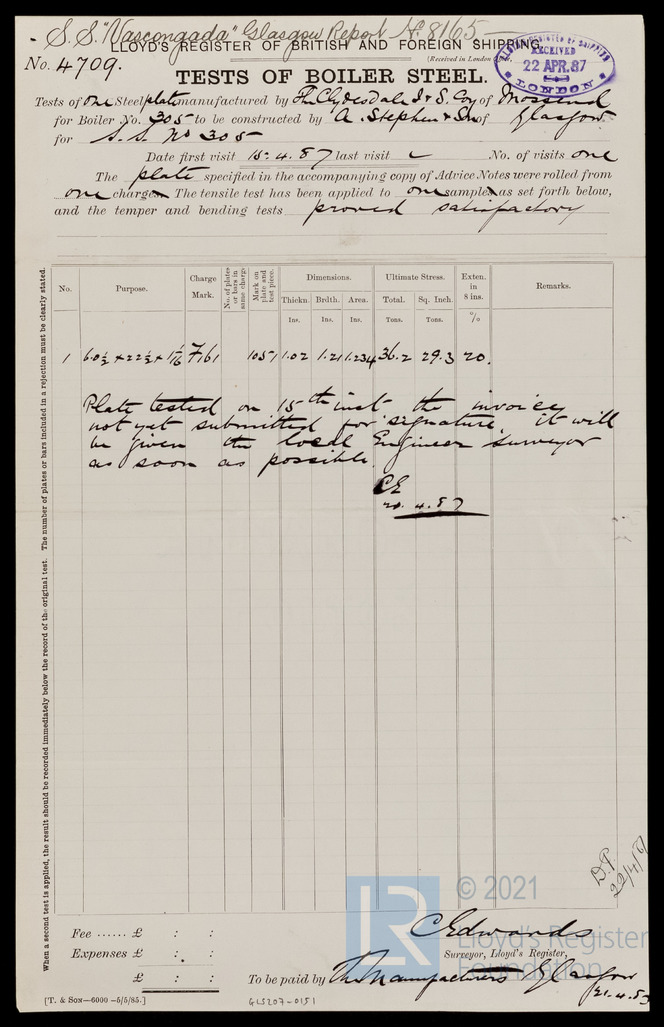 S.S. "Vascongada" Glasgow Report No. 8165
LLOYD'S REGISTER OF BRITISH AND FOREIGN SHIPPING.
No. 4709.
(Received in London
LLOYD'S REGISTER OF SHIPPING
RECEIVED
22 APR. 87
LONDON
TESTS OF BOILER STEEL.
Tests of one Steel plate manufactured by The Clydesdale I & S. Coy of Mossend
for Boiler No. 305 to be constructed by A. Stephen & Son of Glasgow
for S.S. No 305
Date first visit 15.4.87 last visit No. of visits one
The plate specified in the accompanying copy of Advice Notes were rolled from
one charge. The tensile test has been applied to one sample as set forth below,
and the temper and bending tests proved satisfactory
No. Purpose. Charge Mark. No. of plates or bars in same charge Mark on plate and test piece. Dimensions. Ultimate Stress. Exten. in 8 ins. Remarks.
Thickn. Brdth. Area. Total. Sq. Inch.
Ins. Ins. Ins. Tons. Tons. %
1 60½ × 22½ × 1 1/16 7161 1051 1.02 1.21 1.234 36.2 29.3 20.
Plate tested on 15th inst the invoice
not yet submitted for signature, it will
be given the local Engineer surveyor
as soon as possible.
CE
20.4.87
When a second test is applied, the result should be recorded immediately below the record of the original test. The number of plates or bars included in a rejection must be clearly stated.
D.P.
22/4/87
© 2021
LR
Lloyd's Register
Foundation
Fee ...... £ : :
Expenses £ : :
£ : :
C Edwards
Surveyor, Lloyd's Register,
To be paid by The Manufacturers Glasgow
[T. & SON—6000—5/5/85.]
GLS207-0151